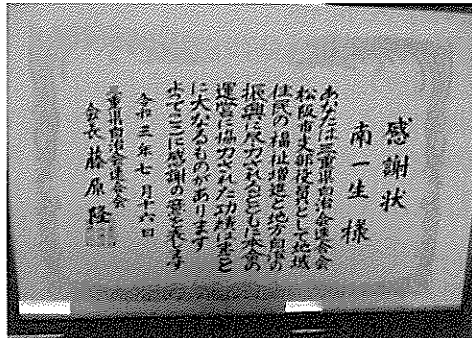 感謝状
南一生 様
あなたは三重県自治会連合会
松阪市支部役員として地域
住民の福祉増進と地方自治の
振興に尽力されるとともに本会の
運営に協力された功績はまこと
に大なるものがあります
よってここに感謝の意を表します
令和三年七月十六日
三重県自治会連合会
会長 藤原隆